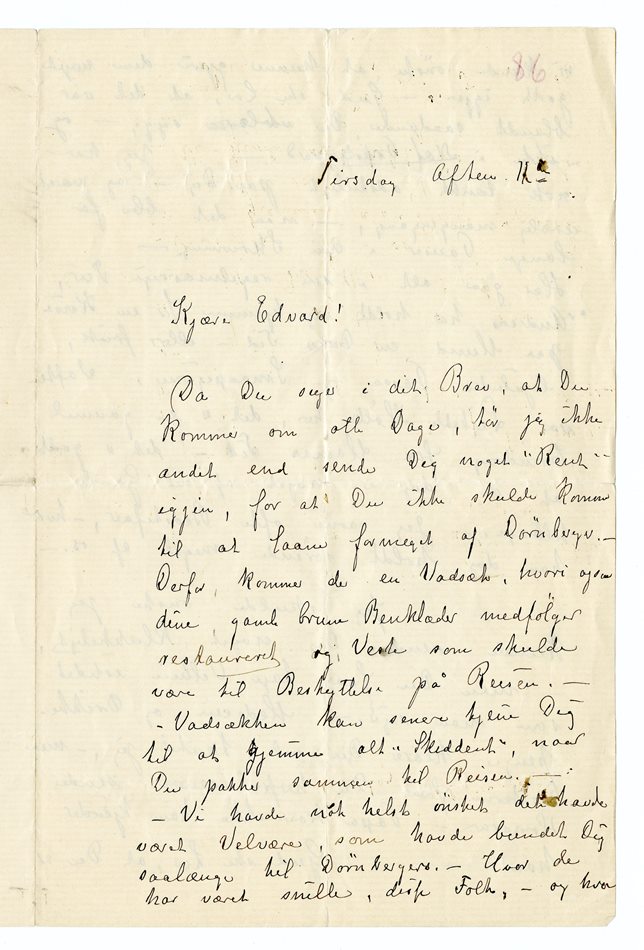 86
Tirsdag Aften. Kl
Kjære Edvard!
Da Du siger i dit Brev, at Du
kommer om otte Dage, tør jeg ikke
andet end sende Dig noget "Rent"
igjen, for at Du ikke skulde komme
til at laane formeget af Dörnberger. –
Derfor kommer de en Vadsæk, hvori ogsaa
dine, gamle brune Benklæder medfölger
restaureret og Veste som skulde
være til Beskyttelse på Reisen. –
– Vadsækken kan senere tjene Dig
til at gjemme alt "Skiddent", naar
Du pakker sammen til Reisen. –
– Vi havde nok helst ønsket det havde
været Velvære, som havde bundet Dig
saalænge til Dörnbergers. – Hvor de
har været snille, disse Folk, – og hvor